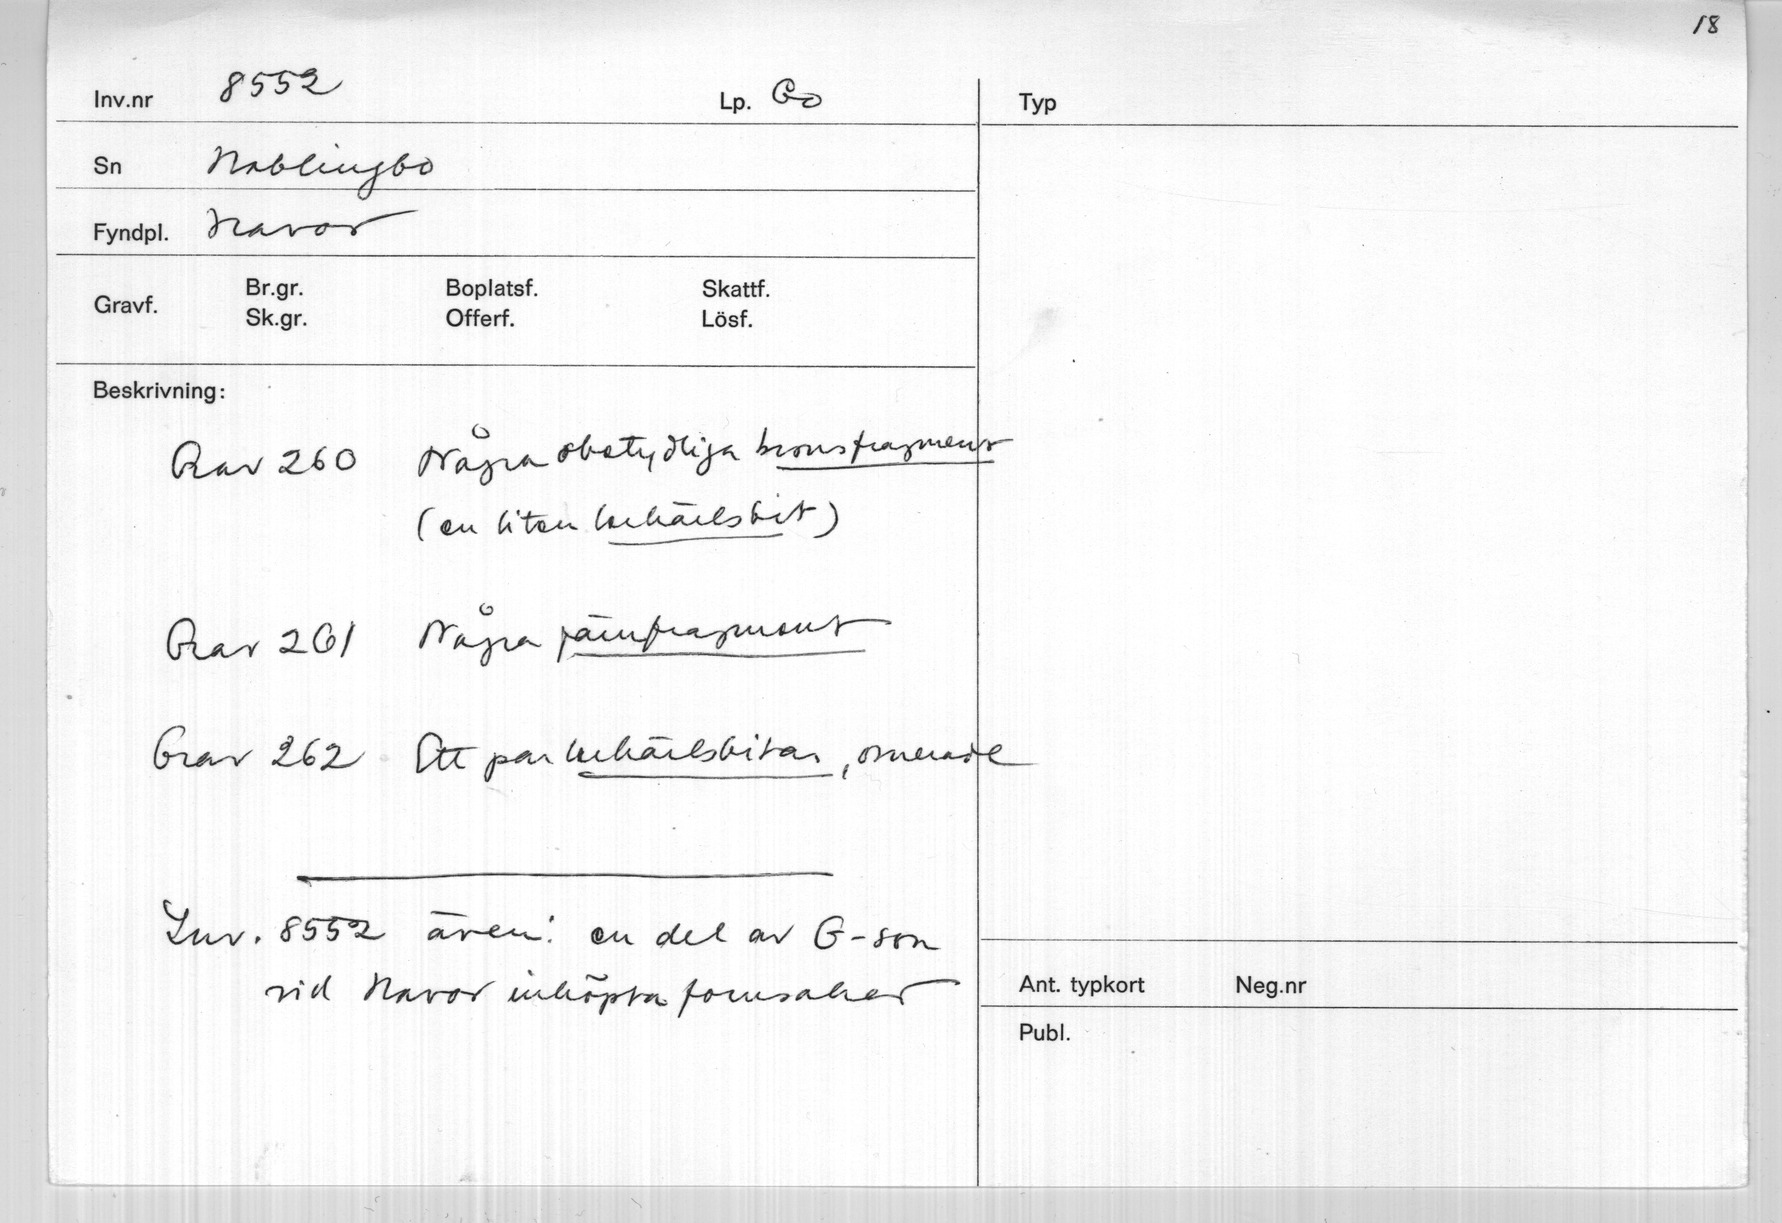 18
Inv.nr 8552 Lp. Go
Typ
Sn Hablingbo
Fyndpl. Havor
Gravf. Br.gr. Boplatsf. Skattf.
Sk.gr. Offerf. Lösf.
Beskrivning:
Grav 260 Några obetydliga bronsfragment
(en liten lerkärlsbit)
Grav 261 Några järnfragment
Grav 262 Ett par lerkärlsbitar, ornerade
Inv. 8552 även: en del av G-son
vid Havor inköpta fornsaker
Ant. typkort Neg.nr
Publ.